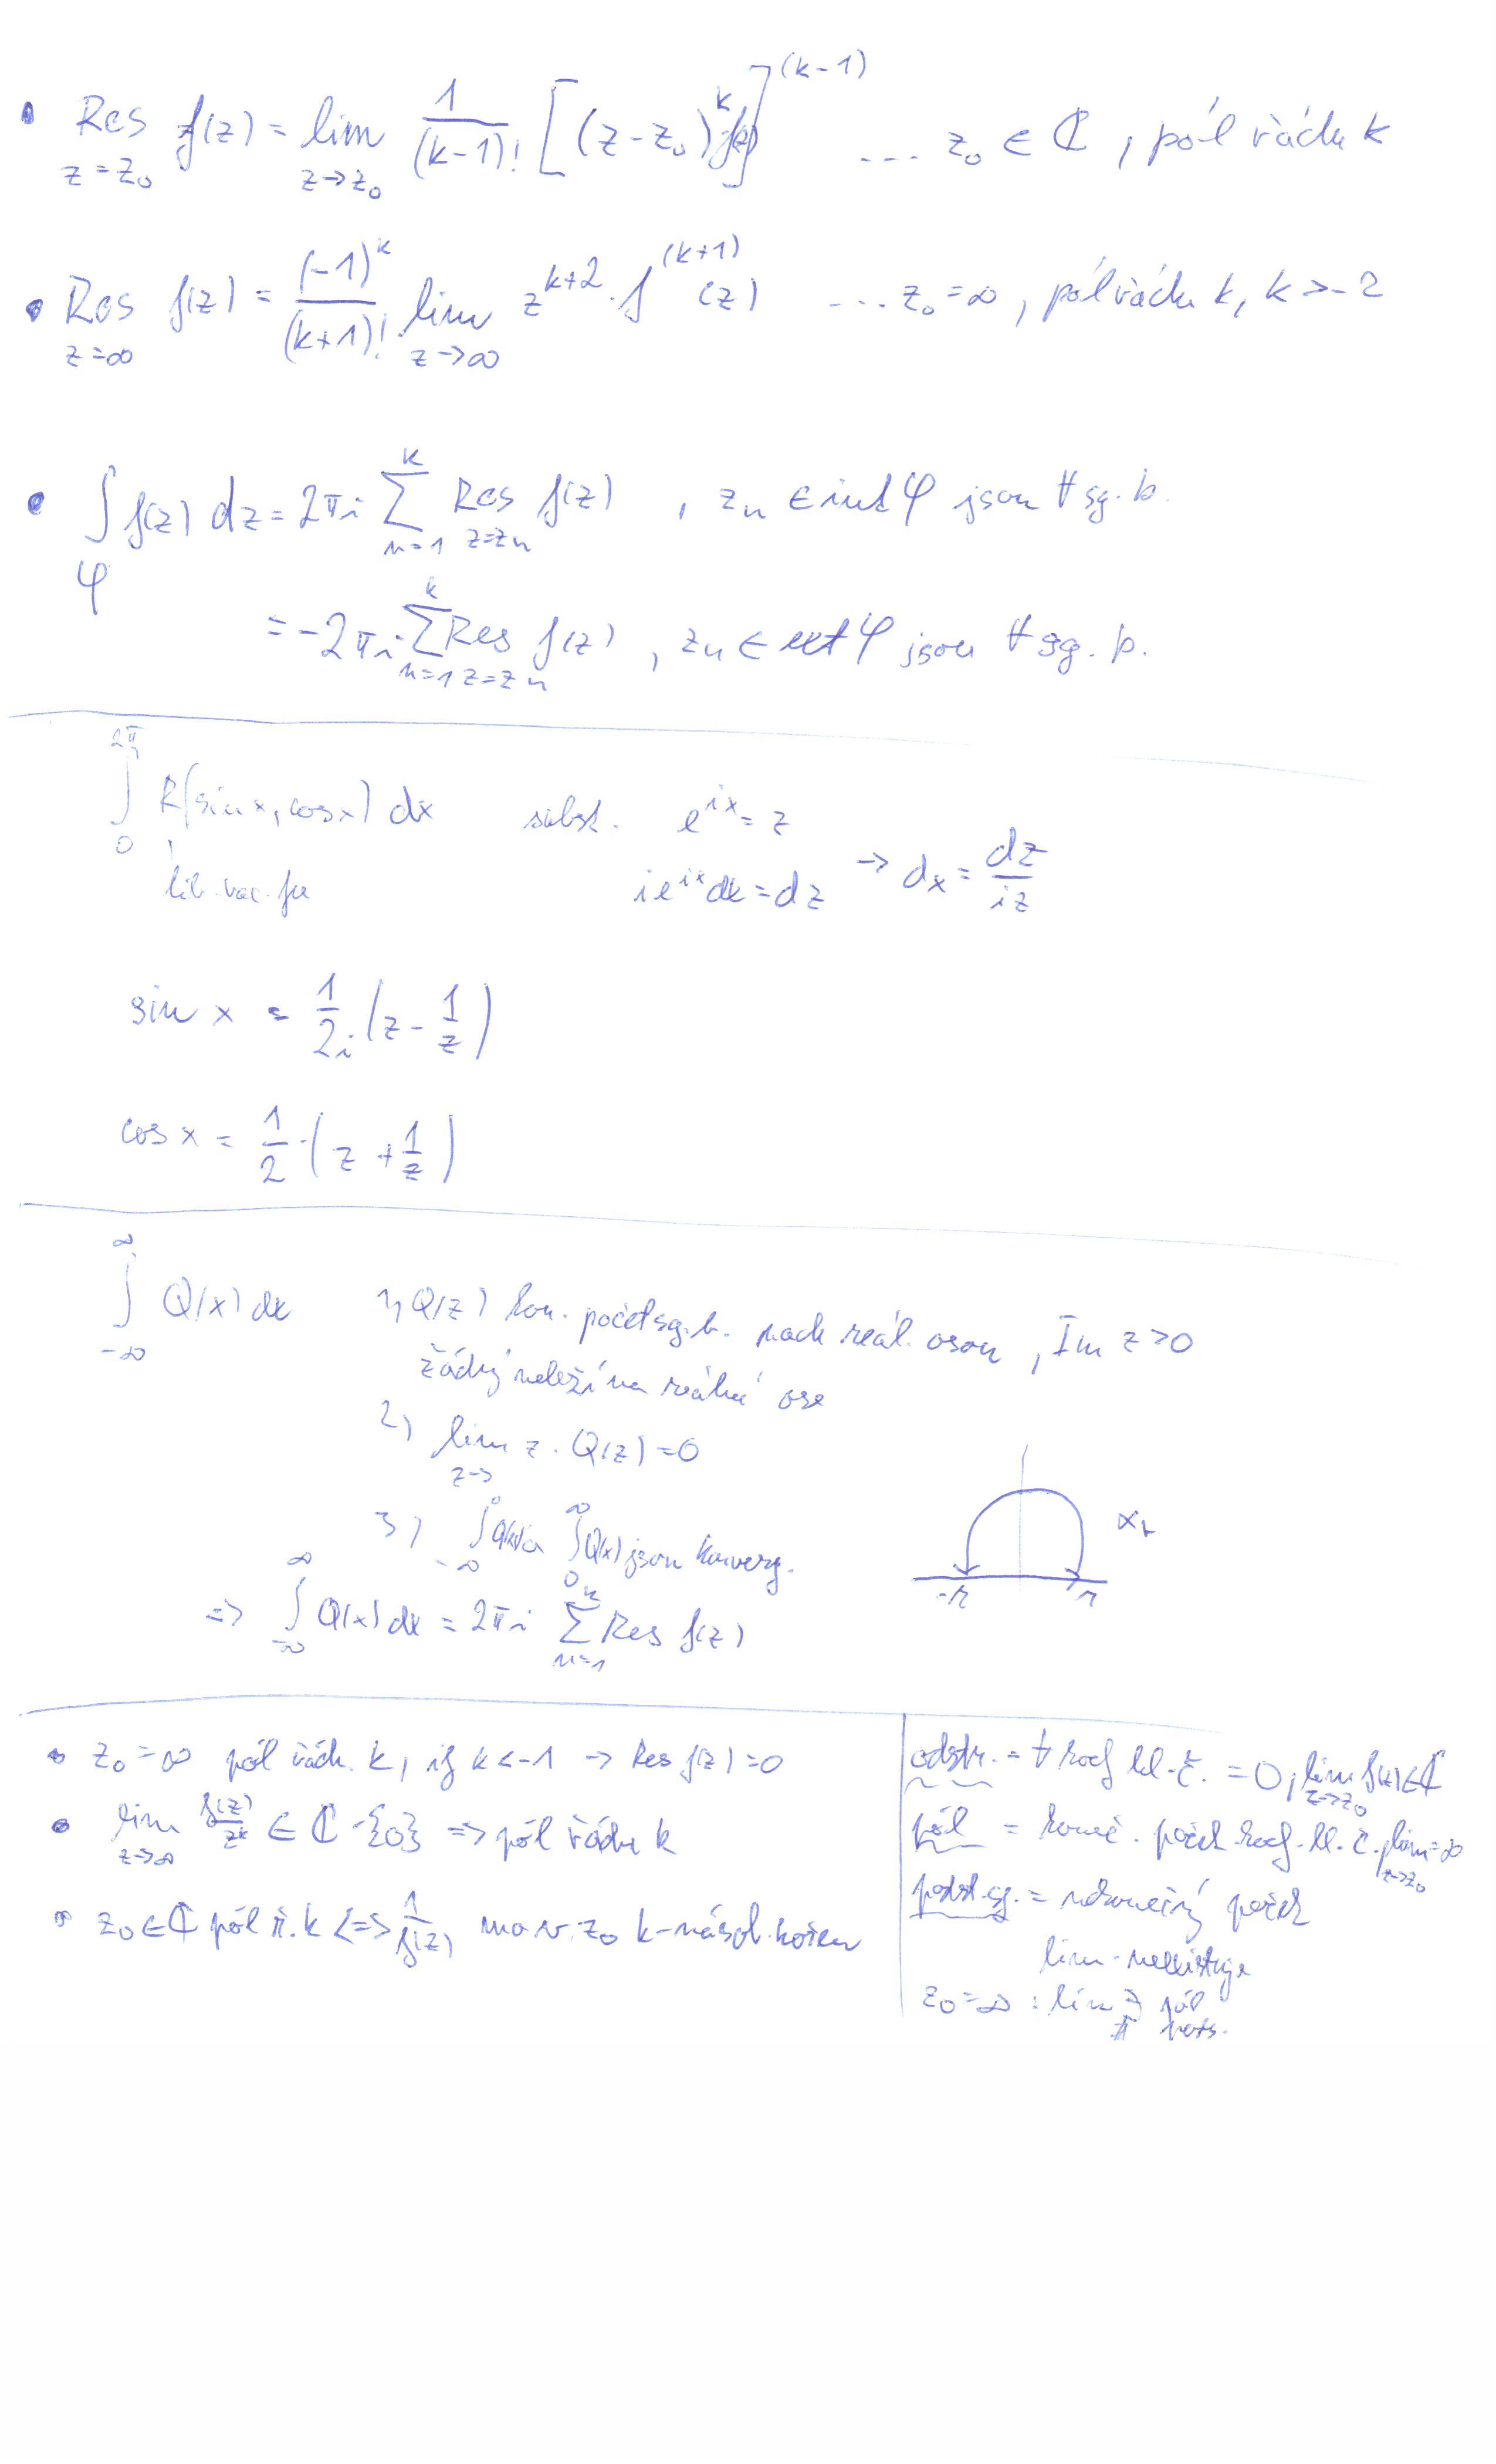 • Res_{z=z₀} f(z) = lim_{z→z₀} 1/(k-1)! [(z-z₀)^k f(z)]^{(k-1)} ... z₀ ∈ ℂ, pól řádu k
• Res_{z=∞} f(z) = (-1)^k/(k+1)! lim_{z→∞} z^{k+2} · f^{(k+1)}(z) ... z₀=∞, pól řádu k, k>-2
• ∫_φ f(z) dz = 2πi ∑_{n=1}^{k} Res_{z=z_n} f(z), z_n ∈ int φ jsou ∀ sg. b.
= -2πi ∑_{n=1}^{k} Res_{z=z_n} f(z), z_n ∈ ext φ jsou ∀ sg. b.
∫_0^{2π} R(sin x, cos x) dx subst. e^{ix} = z
lib. rac. fu ie^{ix} dx = dz → dx = dz/iz
sin x = 1/2i (z - 1/z)
cos x = 1/2 · (z + 1/z)
∫_{-∞}^{∞} Q(x) dx 1) Q(z) kon. počet sg. b. nad reál. osou, Im z > 0
žádný neleží na reálné ose
2) lim_{z→} z · Q(z) = 0
3) ∫_{-∞}^{0} Q(x) a ∫_0^{∞} Q(x) jsou konverg.
⇒ ∫_{-∞}^{∞} Q(x) dx = 2πi ∑_{n=1}^{k} Res f(z)
-r r
• z₀=∞ pól řádu k, if k<-1 → Res f(z) = 0
• lim_{z→∞} f(z)/z^k ∈ ℂ-{0} ⇒ pól řádu k
• z₀ ∈ ℂ pól ř. k <=> 1/f(z) má v z₀ k-násob. kořen
odstr. = ∀ koef hl. č. = 0, lim_{z→z₀} f(z) ∈ ℂ
pól = koneč. počet koef. hl. č., lim_{z→z₀} = ∞
podst. sg. = nekonečný počet
lim neexistuje
z₀=∞ : lim ∃ pól
∄